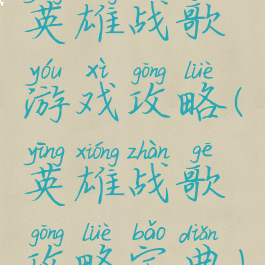 英雄战歌
yóu xì gōng lüè
游戏攻略(
yīng xióng zhàn gē
英雄战歌
gōng lüè bǎo diǎn
攻略宝典)